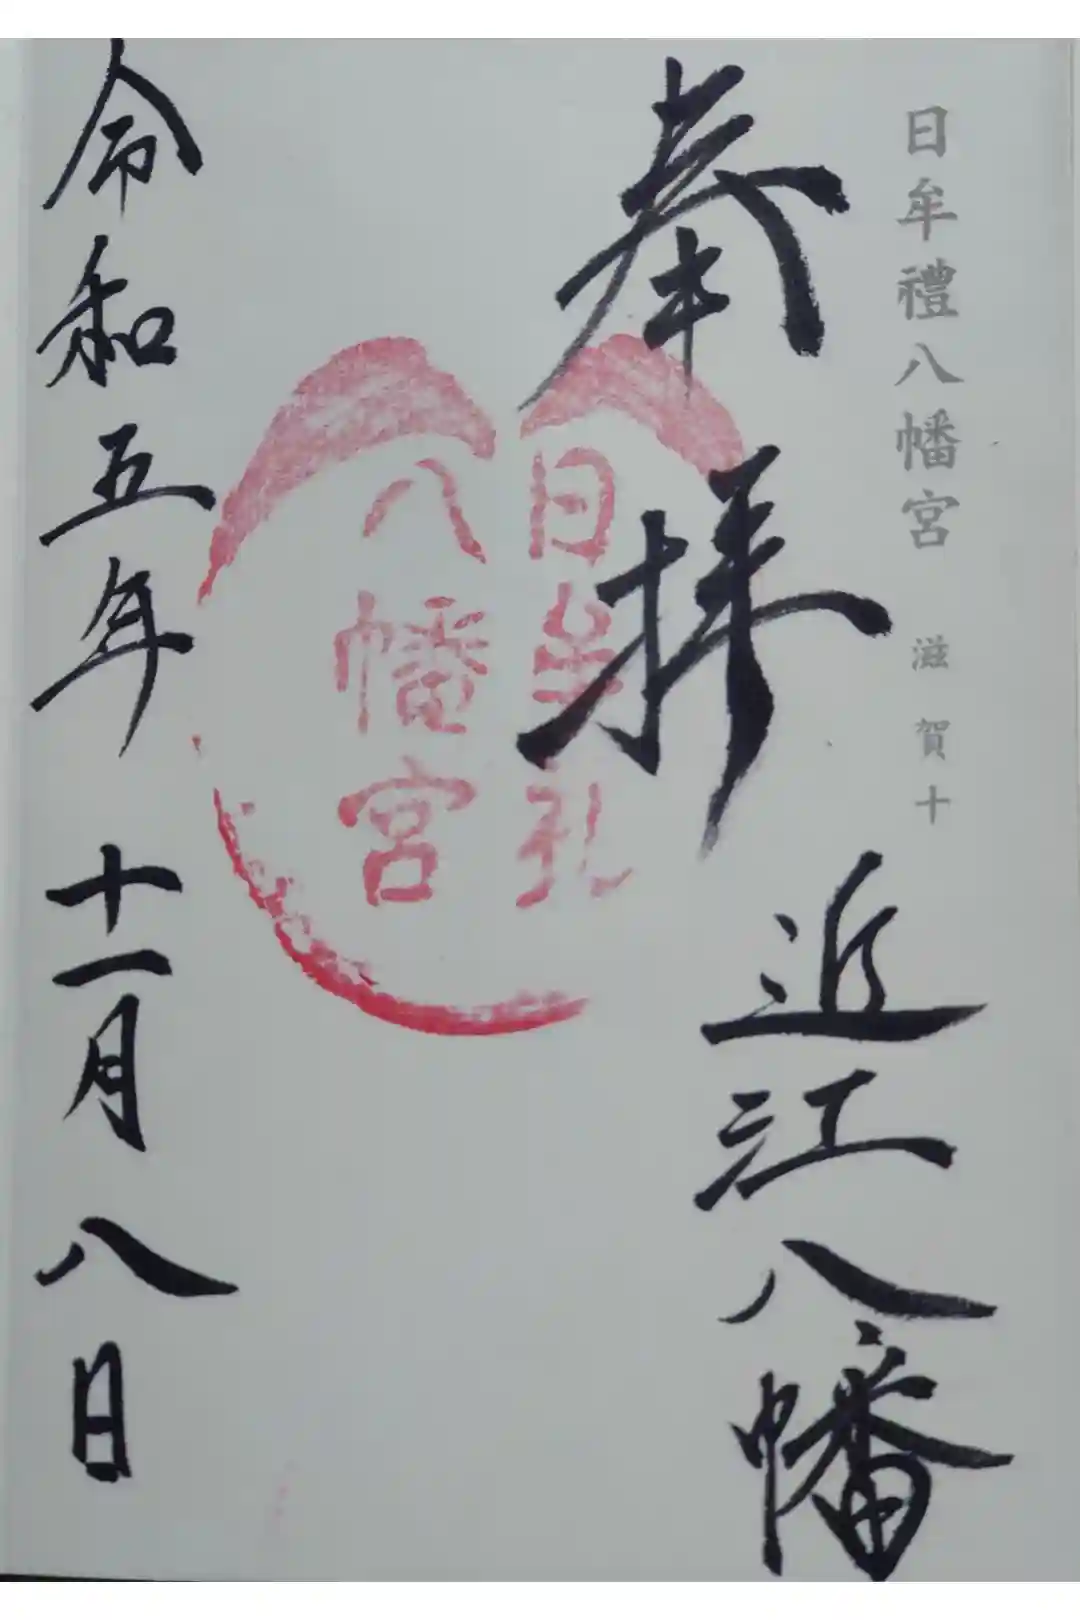 日牟禮八幡宮 滋賀十
奉拝 近江八幡
日牟礼
八幡宮
令和五年 十一月 八日